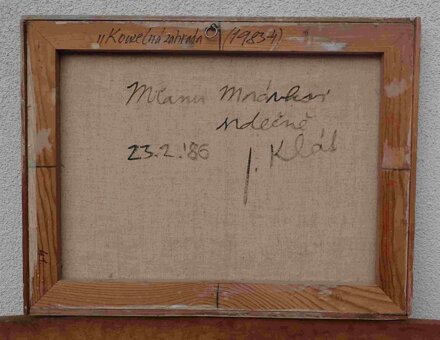 "Kouzelná zahrada" (1983-4)
Milanu
srdečně
23.2.'86 J. Klát